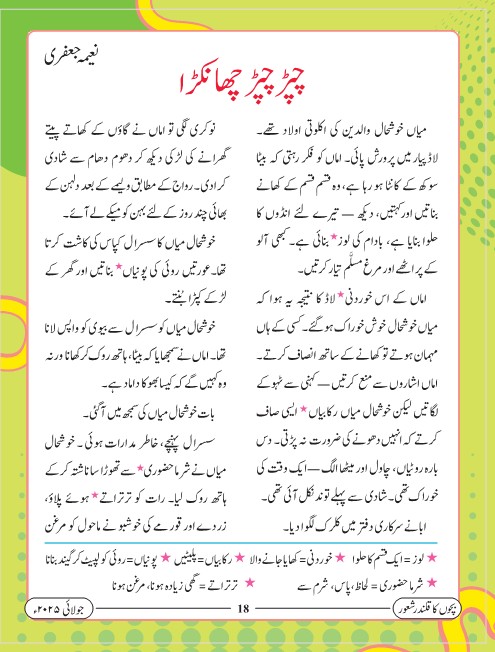 نعیمہ جعفری
چپڑ چپڑ چھانکڑا
میاں خوشحال والدین کی اکلوتی اولاد تھے۔
لاڈ پیار میں پرورش پائی۔ اماں کو فکر رہتی کہ بیٹا
سوکھ کے کانٹا ہو رہا ہے، وہ قسم قسم کے کھانے
بناتیں اور کہتیں، دیکھ — تیرے لئے انڈوں کا
حلوا بنایا ہے، بادام کی لوز★ بنائی ہے۔ کبھی آلو
کے پراٹھے اور مرغ مسلّم تیار کرتیں۔
اماں کے اس خوردنی★ لاڈ کا نتیجہ یہ ہوا کہ
میاں خوشحال خوش خوراک ہوگئے۔ کسی کے ہاں
مہمان ہوتے تو کھانے کے ساتھ انصاف کرتے۔
اماں اشاروں سے منع کرتیں — کہنی سے ٹہوکے
لگاتیں لیکن خوشحال میاں رکابیاں★ ایسی صاف
کرتے کہ انہیں دھونے کی ضرورت نہ پڑتی۔ دس
بارہ روٹیاں، چاول اور میٹھا الگ — ایک وقت کی
خوراک تھی۔ شادی سے پہلے توند نکل آئی تھی۔
ابا نے سرکاری دفتر میں کلرک لگوا دیا۔
نوکری لگی تو اماں نے گاؤں کے کھاتے پیتے
گھرانے کی لڑکی دیکھ کر دھوم دھام سے شادی
کرا دی۔ رواج کے مطابق ولیمے کے بعد دلہن کے
بھائی چند روز کے لئے بہن کو میکے لے آئے۔
خوشحال میاں کا سسرال کپاس کی کاشت کرتا
تھا۔ عورتیں روئی کی پونیاں★ بناتیں اور گھر کے
لڑکے کپڑا بُنتے۔
خوشحال میاں کو سسرال سے بیوی کو واپس لانا
تھا۔ اماں نے سمجھایا کہ بیٹا، ہاتھ روک کر کھانا ورنہ
وہ کہیں گے کہ کیسا بھوکا داماد ہے۔
بات خوشحال میاں کی سمجھ میں آگئی۔
سسرال پہنچے، خاطر مدارات ہوئی۔ خوشحال
میاں نے شرما حضوری★ سے تھوڑا سا ناشتہ کر کے
ہاتھ روک لیا۔ رات کو تر تراتے★ ہوئے پلاؤ،
زردے اور قورمے کی خوشبو نے ماحول کو مرغن
★ لوز = ایک قسم کا حلوا ★ خوردنی = کھایا جانے والا ★ رکابیاں = پلیٹیں ★ پونیاں = روئی کو لپیٹ کر گیند بنانا
★ شرما حضوری = لحاظ، پاس، شرم سے ★ تر تراتے = گھی زیادہ ہونا، مرغن ہونا
بچوں کا قلندر شعور
18
جولائی ۲۰۲۵ء